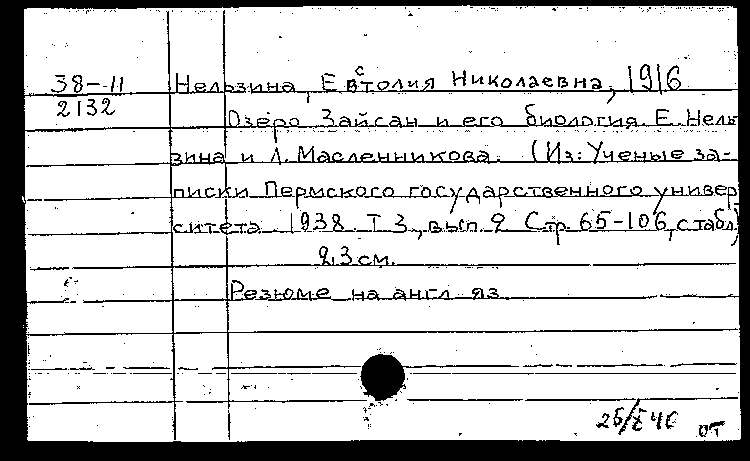 38-11
2132
Нельзина, Евстолия Николаевна, 1916
Озеро Зайсан и его биология. Е. Нель
зина и Л. Масленникова. (Из: Ученые за-
писки Пермского государственного универ
ситета. 1938. Т 3, вып. 2 Стр. 65-106, с табл)
23 см.
Резюме на англ яз.
от